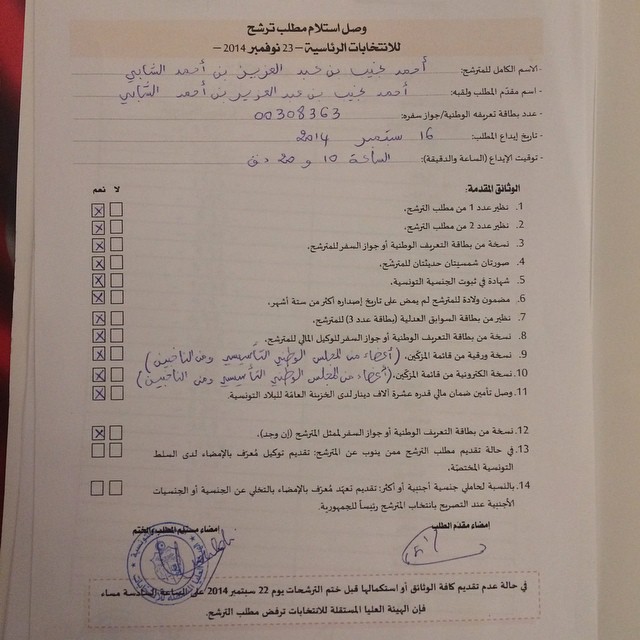 وصل استلام مطلب ترشح
للانتخابات الرئاسية – 23 نوفمبر 2014 –
- الاسم الكامل للمترشح: أحمد نجيب بن عبد العزيز بن أحمد الشابي
- اسم مقدّم المطلب ولقبه: أحمد نجيب بن عبد العزيز بن أحمد الشابي
- عدد بطاقة تعريفه الوطنية/جواز سفره: 00308363
- تاريخ إيداع المطلب: 16 سبتمبر 2014
- توقيت الإيداع (الساعة والدقيقة): الساعة 10 و 20 دق
الوثائق المقدمة: لا نعم
1. نظير عدد 1 من مطلب الترشح. X
2. نظير عدد 2 من مطلب الترشح. X
3. نسخة من بطاقة التعريف الوطنية أو جواز السفر للمترشح. X
4. صورتان شمسيتان حديثتان للمترشح. X
5. شهادة في ثبوت الجنسية التونسية. X
6. مضمون ولادة للمترشح لم يمض على تاريخ إصداره أكثر من ستة أشهر. X
7. نظير من بطاقة السوابق العدلية (بطاقة عدد 3) للمترشح. X
8. نسخة من بطاقة التعريف الوطنية أو جواز السفر للوكيل المالي للمترشح. X
9. نسخة ورقية من قائمة المزكّين. (أعضاء من المجلس الوطني التأسيسي ومن الناخبين) X
10. نسخة الكترونية من قائمة المزكّين. (أعضاء من المجلس الوطني التأسيسي ومن الناخبين) X
11. وصل تأمين ضمان مالي قدره عشرة آلاف دينار لدى الخزينة العامّة للبلاد التونسية. X
12. نسخة من بطاقة التعريف الوطنية أو جواز السفر لممثل المترشح (إن وجد). X
13. في حالة تقديم مطلب الترشح ممن ينوب عن المترشح: تقديم توكيل معُرّف بالإمضاء لدى السلط
التونسية المختصّة.
14. بالنسبة لحاملي جنسية أجنبية أو أكثر: تقديم تعهّد مُعرّف بالإمضاء بالتخلي عن الجنسية أو الجنسيات
الأجنبية عند التصريح بانتخاب المترشح رئيساً للجمهورية.
إمضاء مقدّم الطلب
إمضاء مستلم المطلب والختم
في حالة عدم تقديم كافة الوثائق أو استكمالها قبل ختم الترشحات يوم 22 سبتمبر 2014 على الساعة السادسة مساء
فإن الهيئة العليا المستقلة للانتخابات ترفض مطلب الترشح.